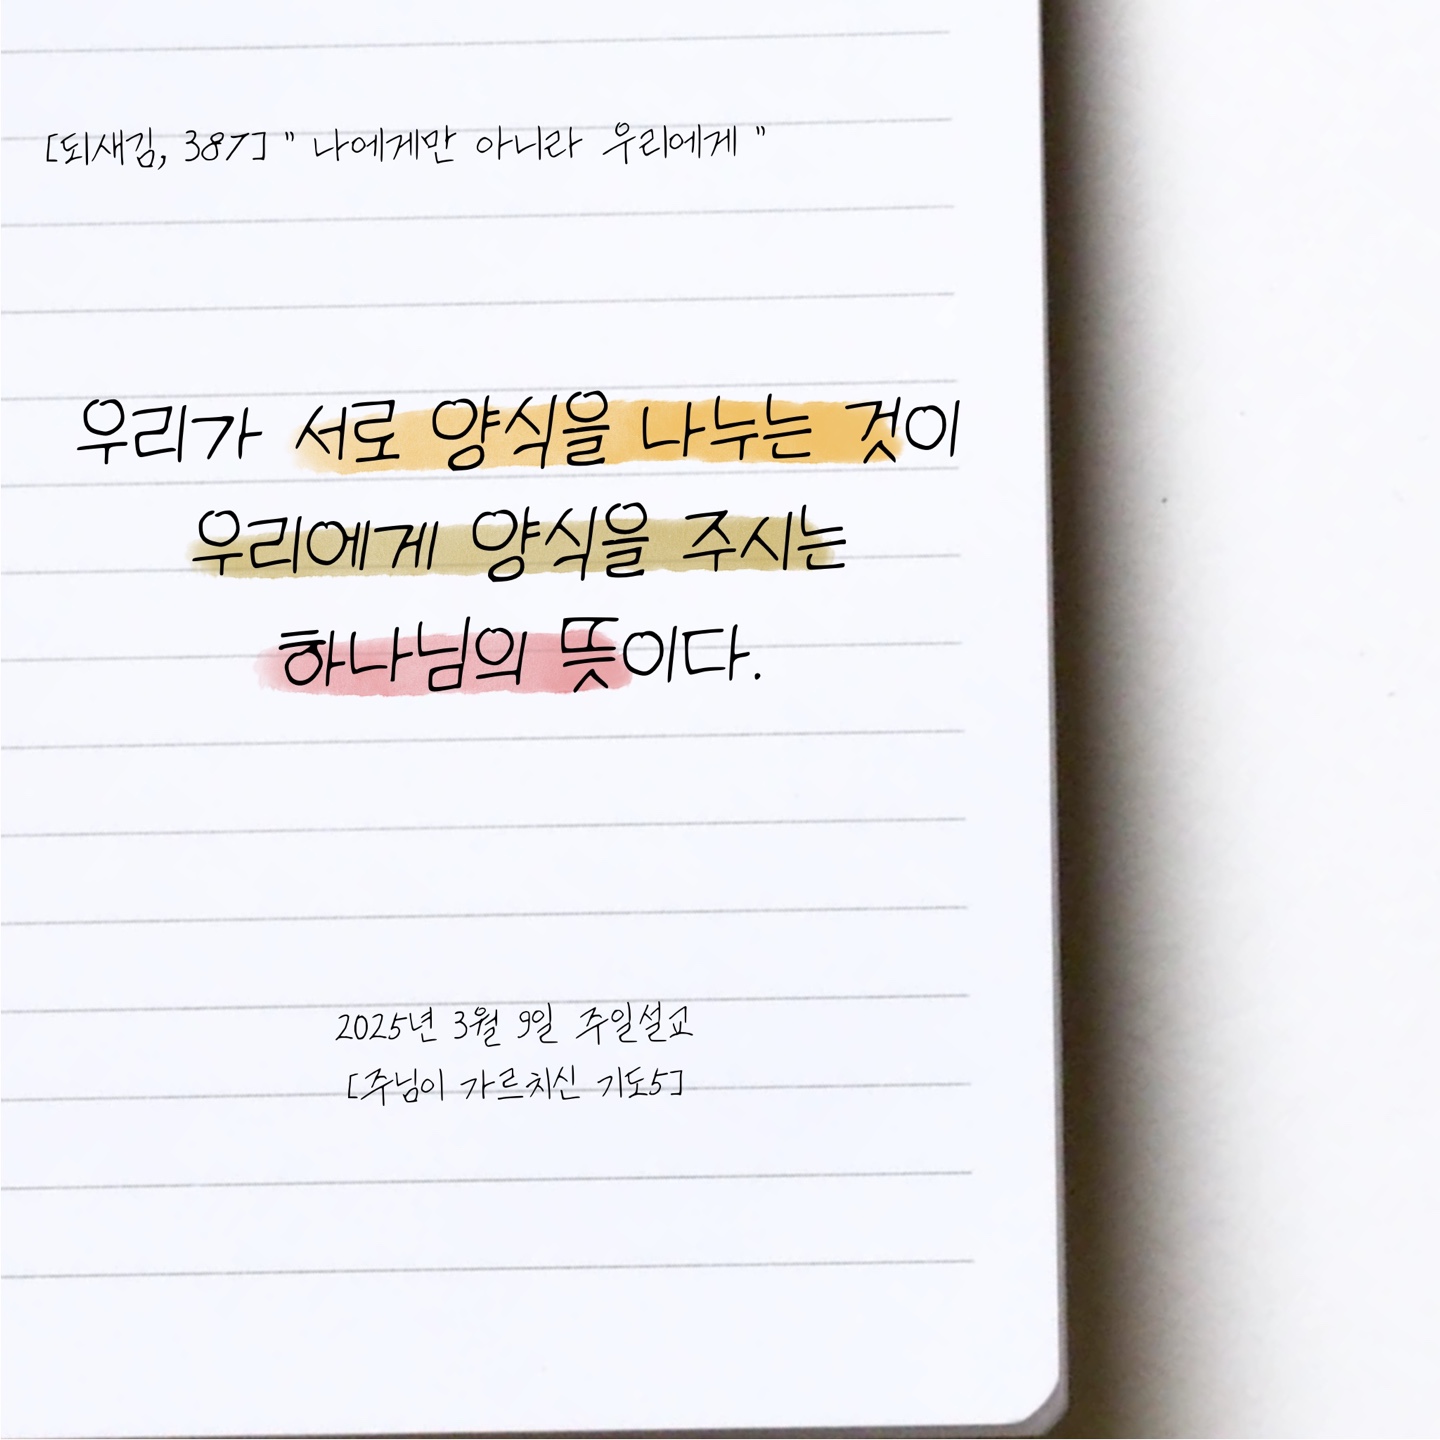 [되새김, 387] " 나에게만 아니라 우리에게 "
우리가 서로 양식을 나누는 것이
우리에게 양식을 주시는
하나님의 뜻이다.
2025년 3월 9일 주일설교
[주님이 가르치신 기도5]